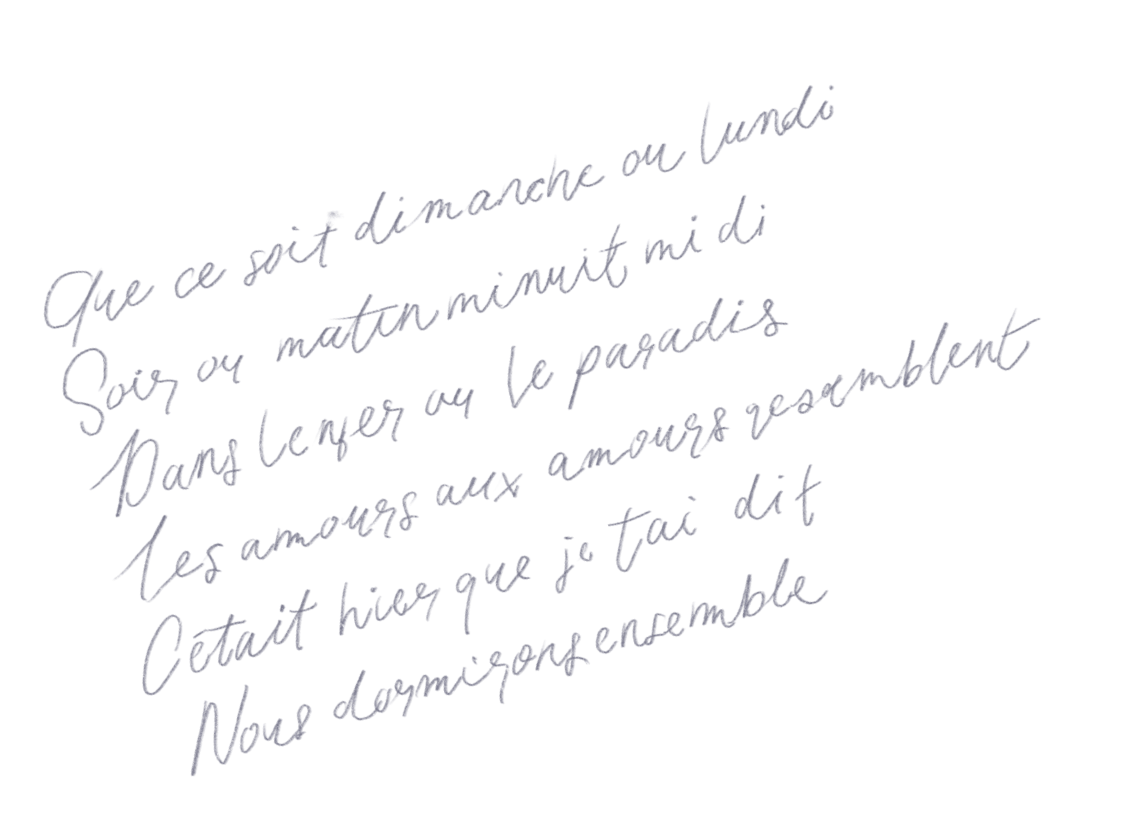 Que ce soit dimanche ou lundi
Soir ou matin minuit midi
Dans lenfer ou le paradis
Les amours aux amours resemblent
Cétait hier que je tai dit
Nous dormirons ensemble